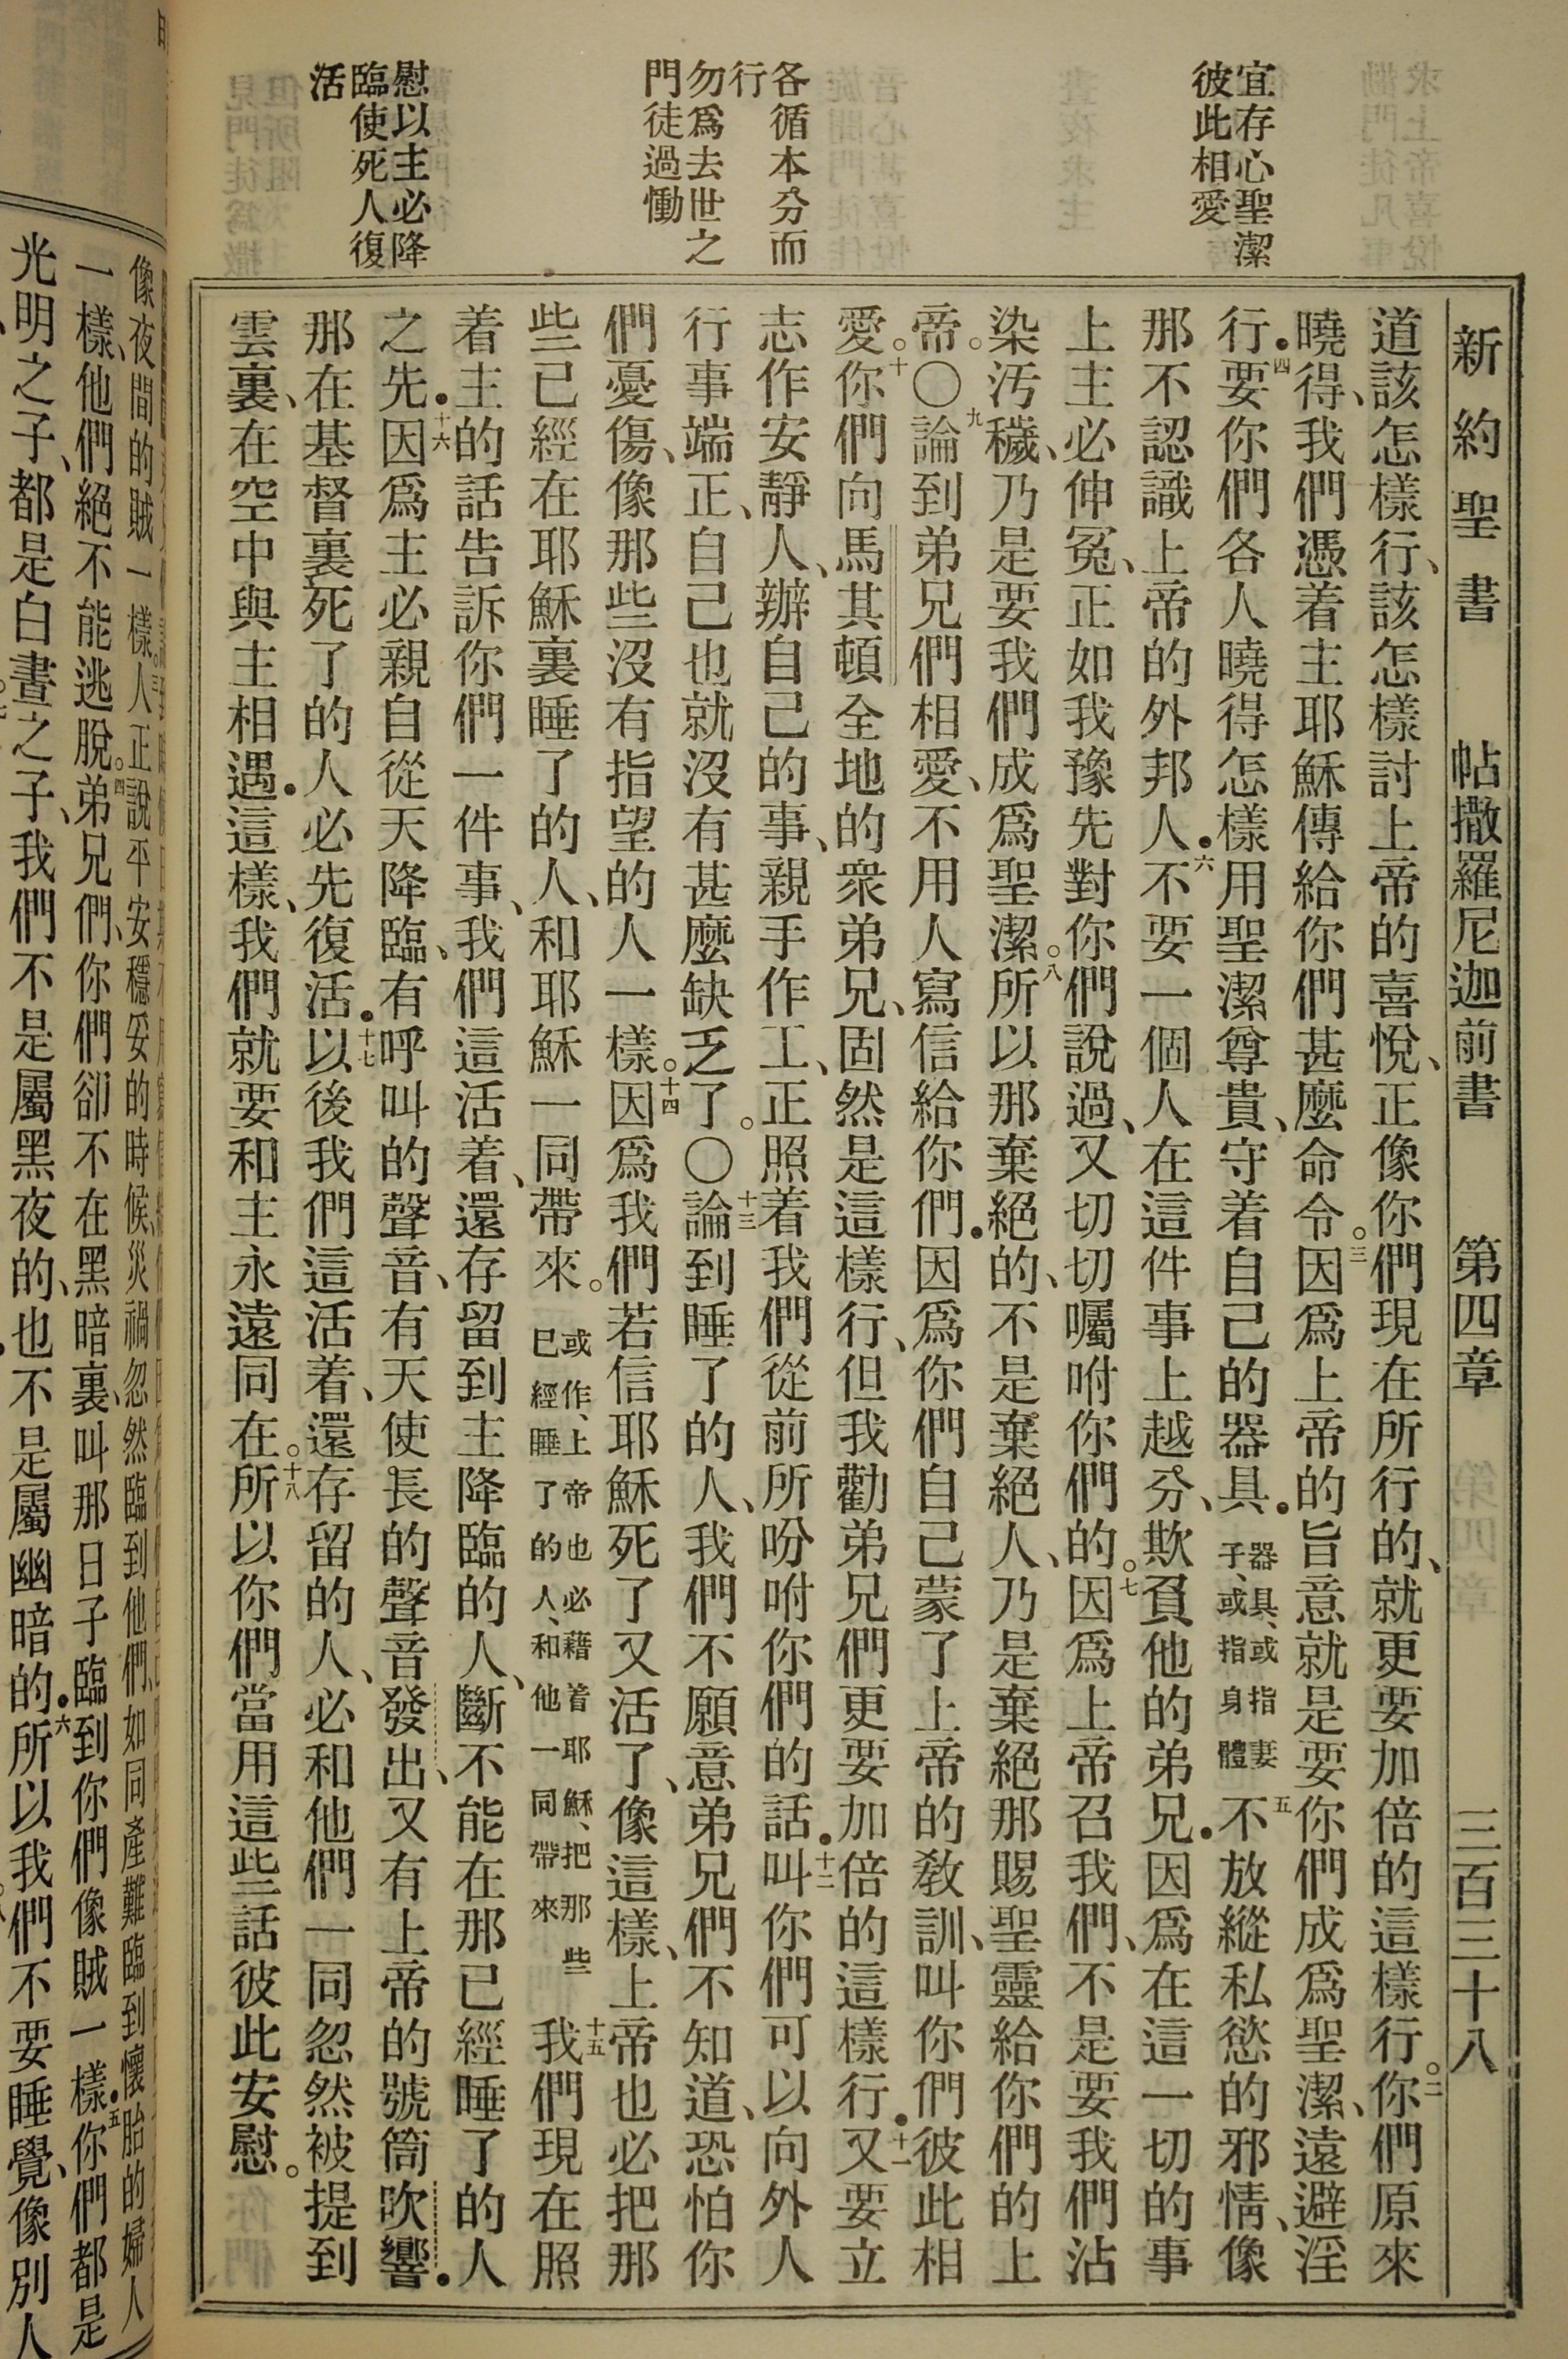 新約聖書　帖撒羅尼迦前書　第四章　三百三十八
宜存心聖潔
彼此相愛
各循本分而
行
勿爲去世之
門徒過慟
慰以主必降
臨使死人復
活
道該怎樣行、該怎樣討上帝的喜悅、正像你們現在所行的、就更要加倍的這樣行。二你們原來
曉得、我們憑着主耶穌傳給你們甚麼命令。三因爲上帝的旨意就是要你們成爲聖潔、遠避淫
行．四要你們各人曉得怎樣用聖潔尊貴、守着自己的器具．器具、或指妻子、或指身體五不放縱私慾的邪情、像
那不認識上帝的外邦人．六不要一個人在這件事上越分、欺負他的弟兄．因爲在這一切的事
上主必伸冤、正如我豫先對你們說過、又切切囑咐你們的。七因爲上帝召我們、不是要我們沾
染汚穢、乃是要我們成爲聖潔。八所以那棄絕的、不是棄絕人、乃是棄絕那賜聖靈給你們的上
帝。〇九論到弟兄們相愛、不用人寫信給你們．因爲你們自己蒙了上帝的敎訓、叫你們彼此相
愛。十你們向馬其頓全地的衆弟兄、固然是這樣行、但我勸弟兄們更要加倍的這樣行．十一又要立
志作安靜人、辦自己的事、親手作工、正照着我們從前所吩咐你們的話．十二叫你們可以向外人
行事端正、自己也就沒有甚麼缺乏了。〇十三論到睡了的人、我們不願意弟兄們不知道、恐怕你
們憂傷、像那些沒有指望的人一樣。十四因爲我們若信耶穌死了又活了、像這樣、上帝也必把那
些已經在耶穌裏睡了的人、和耶穌一同帶來。或作、上帝也必藉着耶穌、把那些已經睡了的人、和他一同帶來十五我們現在照
着主的話告訴你們一件事、我們這活着、還存留到主降臨的人、斷不能在那已經睡了的人
之先．十六因爲主必親自從天降臨、有呼叫的聲音、有天使長的聲音發出、又有上帝的號筒吹響．
那在基督裏死了的人必先復活．十七以後我們這活着、還存留的人、必和他們一同忽然被提到
雲裏、在空中與主相遇．這樣、我們就要和主永遠同在。十八所以你們當用這些話彼此安慰。
像夜間的賊一樣。三人正說平安穩妥的時候、災禍忽然臨到他們、如同產難臨到懷胎的婦人
一樣、他們絕不能逃脫。四弟兄們、你們卻不在黑暗裏、叫那日子臨到你們像賊一樣．五你們都是
光明之子、都是白晝之子、我們不是屬黑夜的、也不是屬幽暗的．六所以我們不要睡覺、像別人